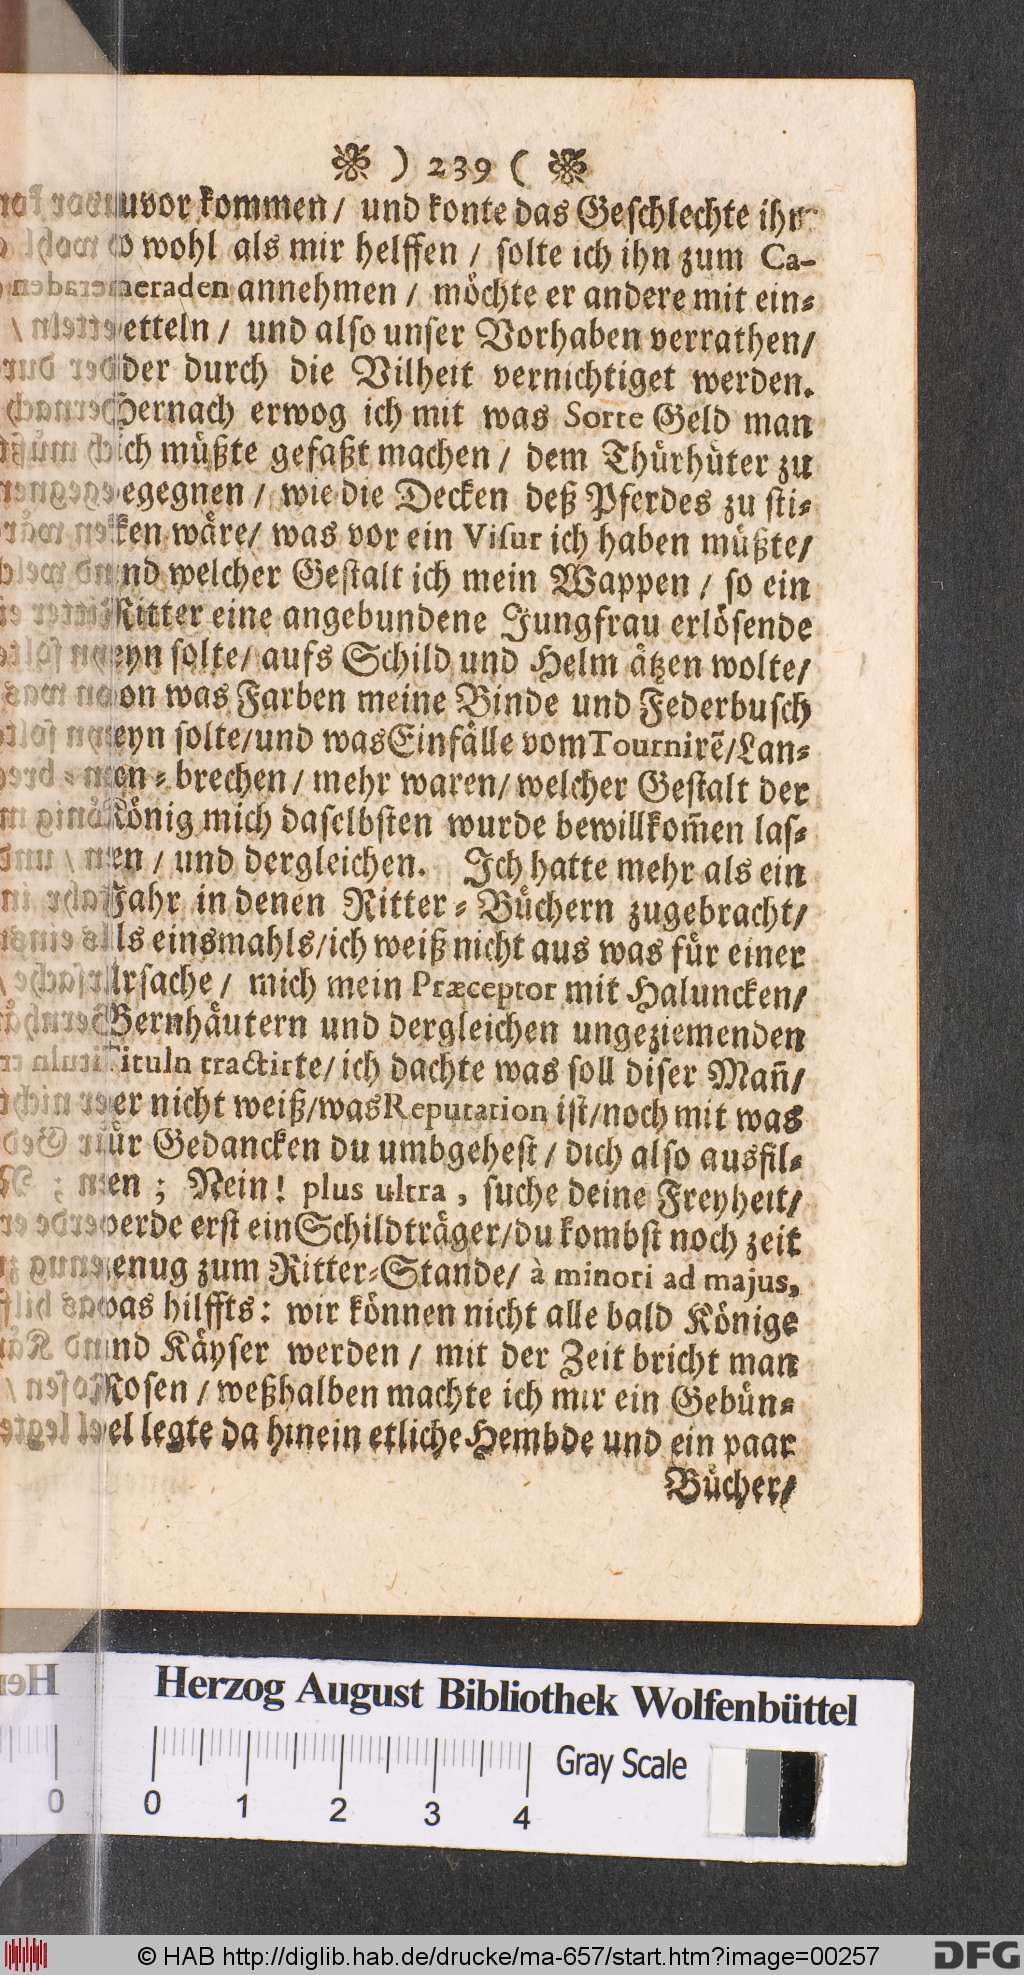 ) 239 (
zuvor kommen/ und konte das Geschlechte ihr
so wohl als mir helffen / solte ich ihn zum Ca-
meraden annehmen / möchte er andere mit ein-
zetteln / und also unser Vorhaben verrathen/
oder durch die Vilheit vernichtiget werden.
Hernach erwog ich mit was Sorte Geld man
sich müßte gefaßt machen / dem Thürhüter zu
begegnen / wie die Decken deß Pferdes zu sti-
cken wäre/ was vor ein Visur ich haben müßte/
und welcher Gestalt ich mein Wappen / so ein
Ritter eine angebundene Jungfrau erlösende
seyn solte/ aufs Schild und Helm ätzen wolte/
von was Farben meine Binde und Federbusch
seyn solte/und was Einfälle vom Tournirẽ/Lan-
tzen-brechen/ mehr waren/ welcher Gestalt der
König mich daselbsten wurde bewillkom̃en las-
sen / und dergleichen. Ich hatte mehr als ein
Jahr in denen Ritter-Büchern zugebracht/
als einsmahls/ich weiß nicht aus was für einer
Ursache / mich mein Præceptor mit Haluncken/
Bernhäutern und dergleichen ungeziemenden
Tituln tractirte/ich dachte was soll diser Mañ/
der nicht weiß/was Reputation ist/noch mit was
für Gedancken du umbgehest / dich also ausfil-
tzen ; Nein! plus ultra, suche deine Freyheit/
werde erst ein Schildträger/du kombst noch zeit
genug zum Ritter-Stande/ à minori ad majus,
was hilffts: wir können nicht alle bald Könige
und Käyser werden / mit der Zeit bricht man
Rosen / weßhalben machte ich mir ein Gebün-
del legte da hinein etliche Hembde und ein paar
Bücher/
Herzog August Bibliothek Wolfenbüttel
0 1 2 3 4
Gray Scale
© HAB http://diglib.hab.de/drucke/ma-657/start.htm?image=00257
DFG